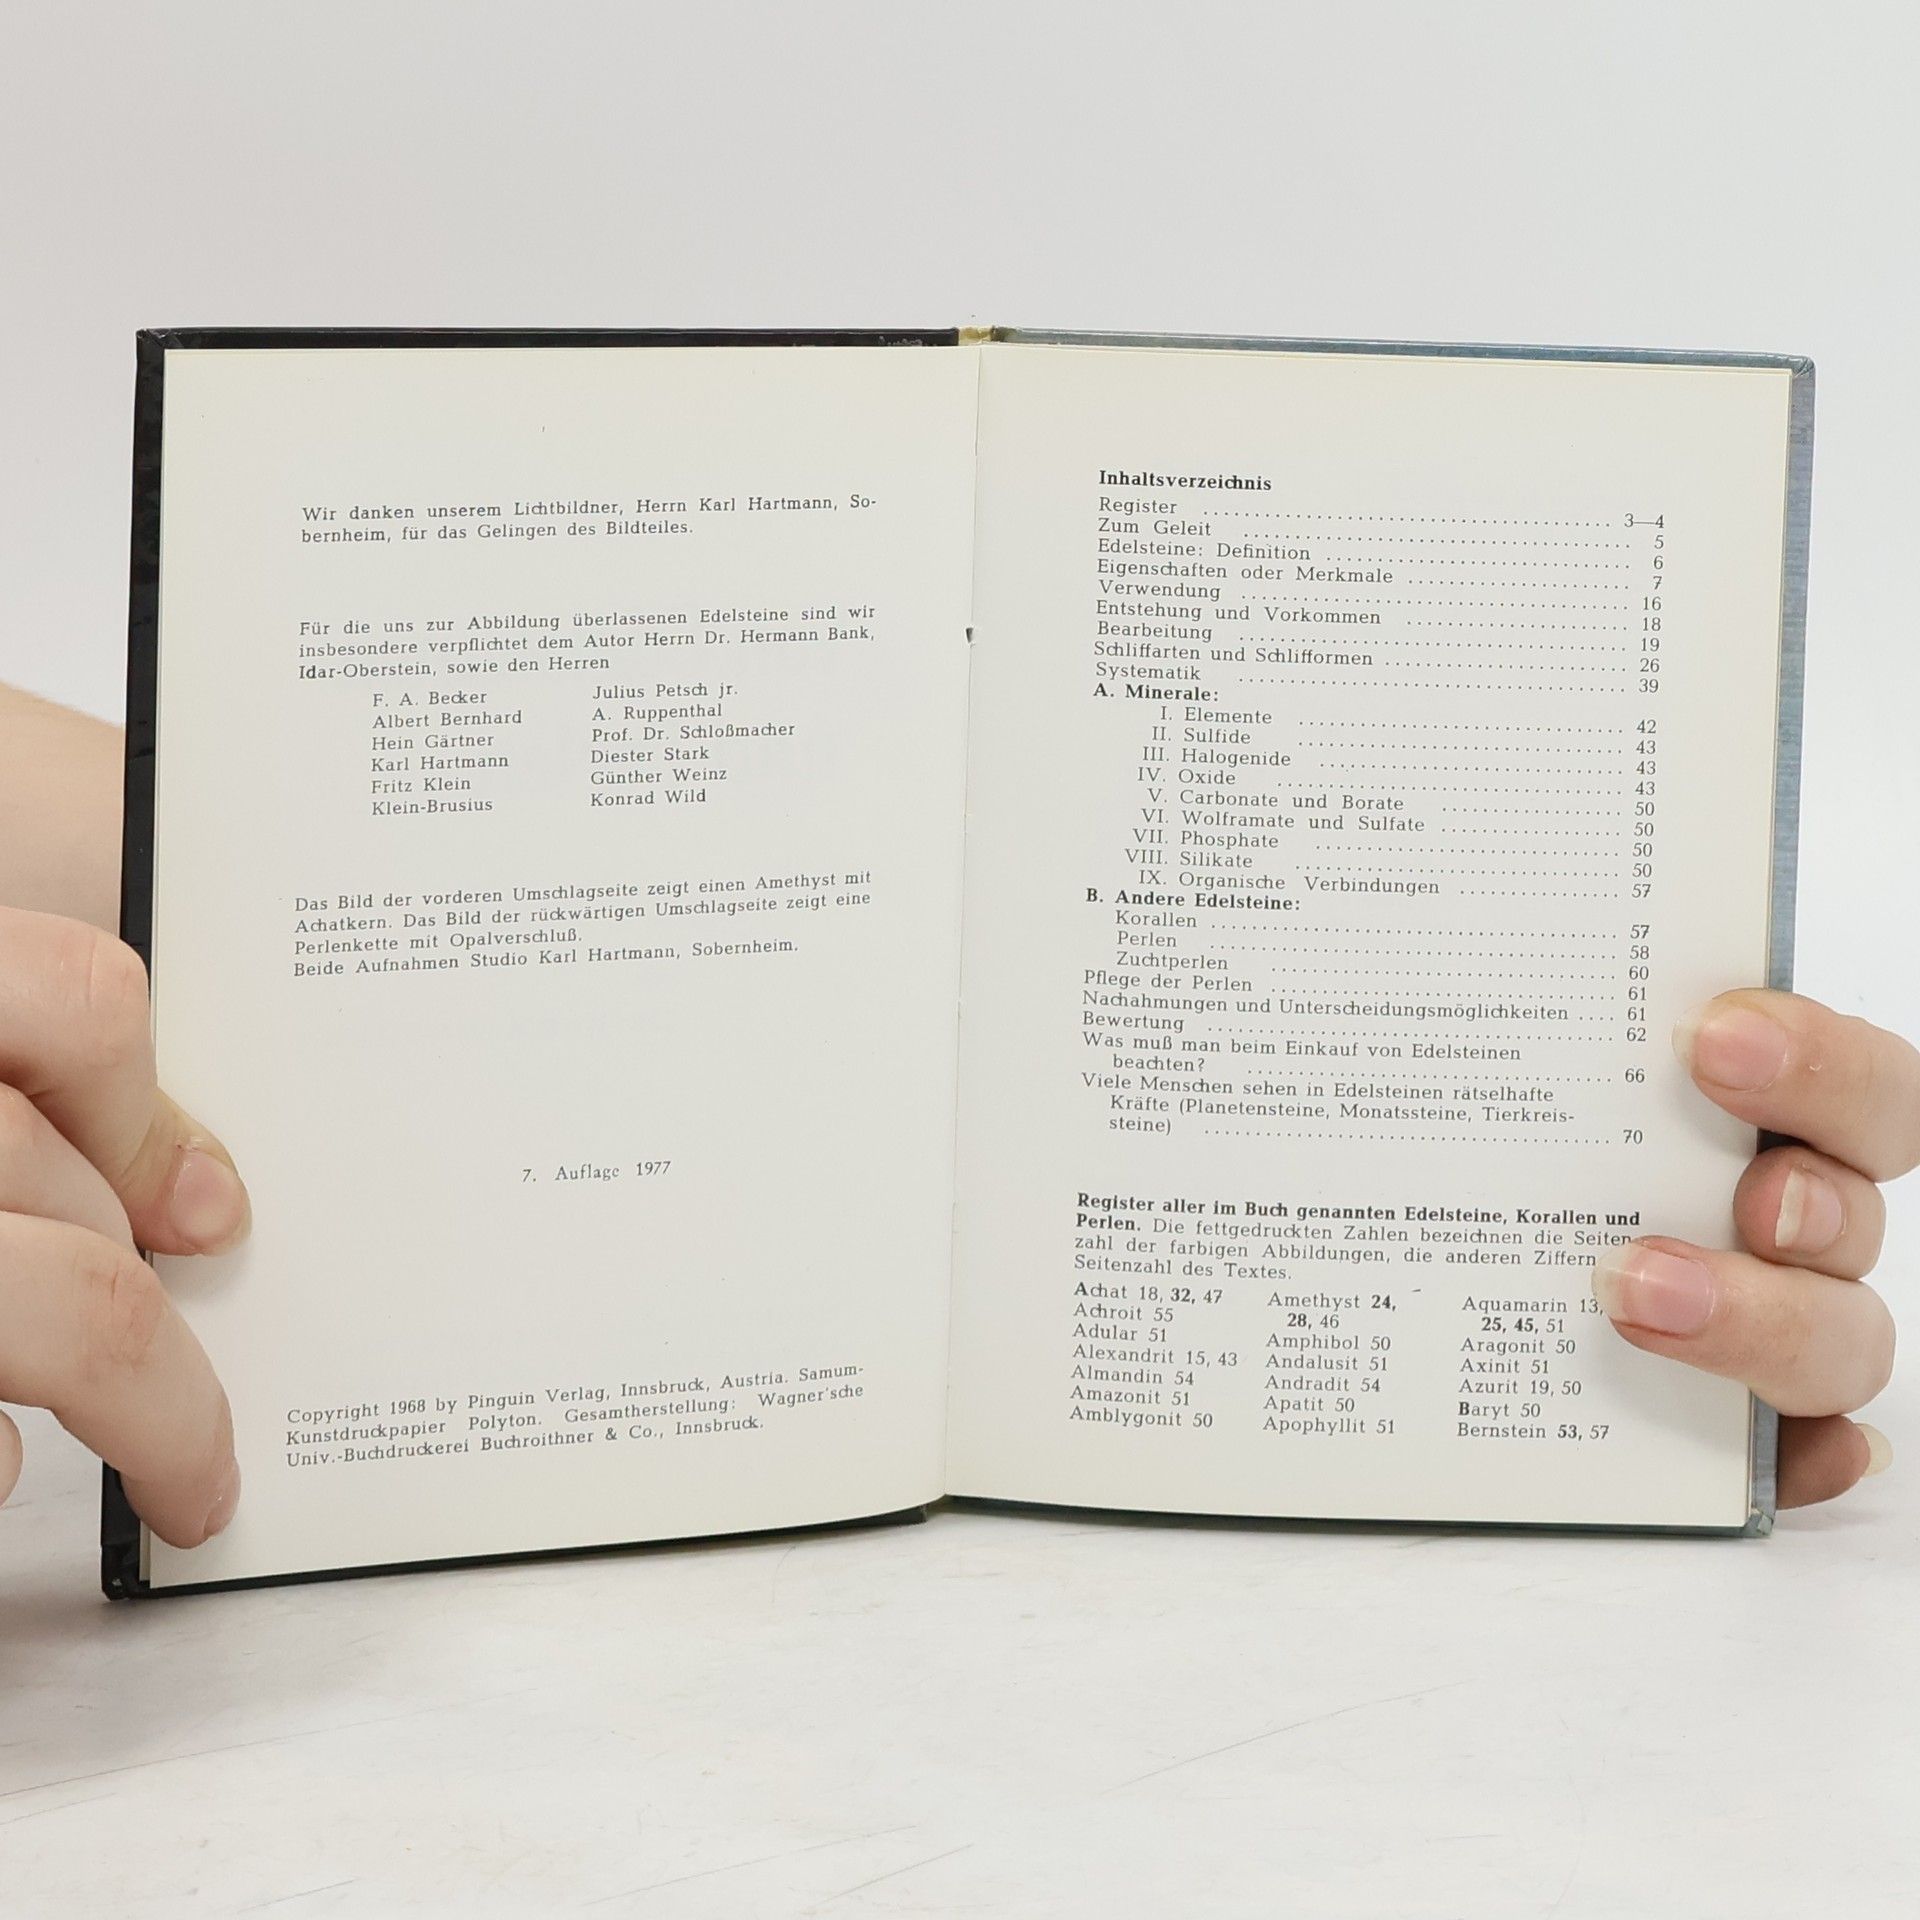 Wir danken unserem Lichtbildner, Herrn Karl Hartmann, So-
bernheim, für das Gelingen des Bildteiles.
Für die uns zur Abbildung überlassenen Edelsteine sind wir
insbesondere verpflichtet dem Autor Herrn Dr. Hermann Bank,
Idar-Oberstein, sowie den Herren
F. A. Becker
Albert Bernhard
Hein Gärtner
Karl Hartmann
Fritz Klein
Klein-Brusius
Julius Petsch jr.
A. Ruppenthal
Prof. Dr. Schloßmacher
Diester Stark
Günther Weinz
Konrad Wild
Das Bild der vorderen Umschlagseite zeigt einen Amethyst mit
Achatkern. Das Bild der rückwärtigen Umschlagseite zeigt eine
Perlenkette mit Opalverschluß.
Beide Aufnahmen Studio Karl Hartmann, Sobernheim.
7. Auflage 1977
Copyright 1968 by Pinguin Verlag, Innsbruck, Austria. Samum-
Kunstdruckpapier Polyton. Gesamtherstellung: Wagner'sche
Univ.-Buchdruckerei Buchroithner & Co., Innsbruck.
Inhaltsverzeichnis
Register ........................................ 3—4
Zum Geleit ...................................... 5
Edelsteine: Definition .............................. 6
Eigenschaften oder Merkmale ...................... 7
Verwendung ...................................... 16
Entstehung und Vorkommen ...................... 18
Bearbeitung ...................................... 19
Schliffarten und Schlifformen ........................ 26
Systematik ...................................... 39
A. Minerale:
I. Elemente ................................ 42
II. Sulfide ................................ 43
III. Halogenide .............................. 43
IV. Oxide .................................. 43
V. Carbonate und Borate .................. 50
VI. Wolframate und Sulfate .................. 50
VII. Phosphate .............................. 50
VIII. Silikate ................................ 50
IX. Organische Verbindungen ................ 57
B. Andere Edelsteine:
Korallen ........................................ 57
Perlen ........................................ 58
Zuchtperlen .................................. 60
Pflege der Perlen .................................. 61
Nachahmungen und Unterscheidungsmöglichkeiten .... 61
Bewertung ........................................ 62
Was muß man beim Einkauf von Edelsteinen
beachten? .................................... 66
Viele Menschen sehen in Edelsteinen rätselhafte
Kräfte (Planetensteine, Monatssteine, Tierkreis-
steine) ........................................ 70
Register aller im Buch genannten Edelsteine, Korallen und
Perlen. Die fettgedruckten Zahlen bezeichnen die Seiten-
zahl der farbigen Abbildungen, die anderen Ziffern
Seitenzahl des Textes.
Achat 18, 32, 47
Achroit 55
Adular 51
Alexandrit 15, 43
Almandin 54
Amazonit 51
Amblygonit 50
Amethyst 24,
28, 46
Amphibol 50
Andalusit 51
Andradit 54
Apatit 50
Apophyllit 51
Aquamarin 13,
25, 45, 51
Aragonit 50
Axinit 51
Azurit 19, 50
Baryt 50
Bernstein 53, 57